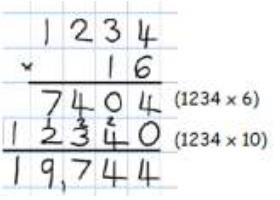 1 2 3 4
× 1 6
7 4 0 4 (1234 x 6)
1 2 3 4 0 (1234 x 10)
1 9,7 4 4